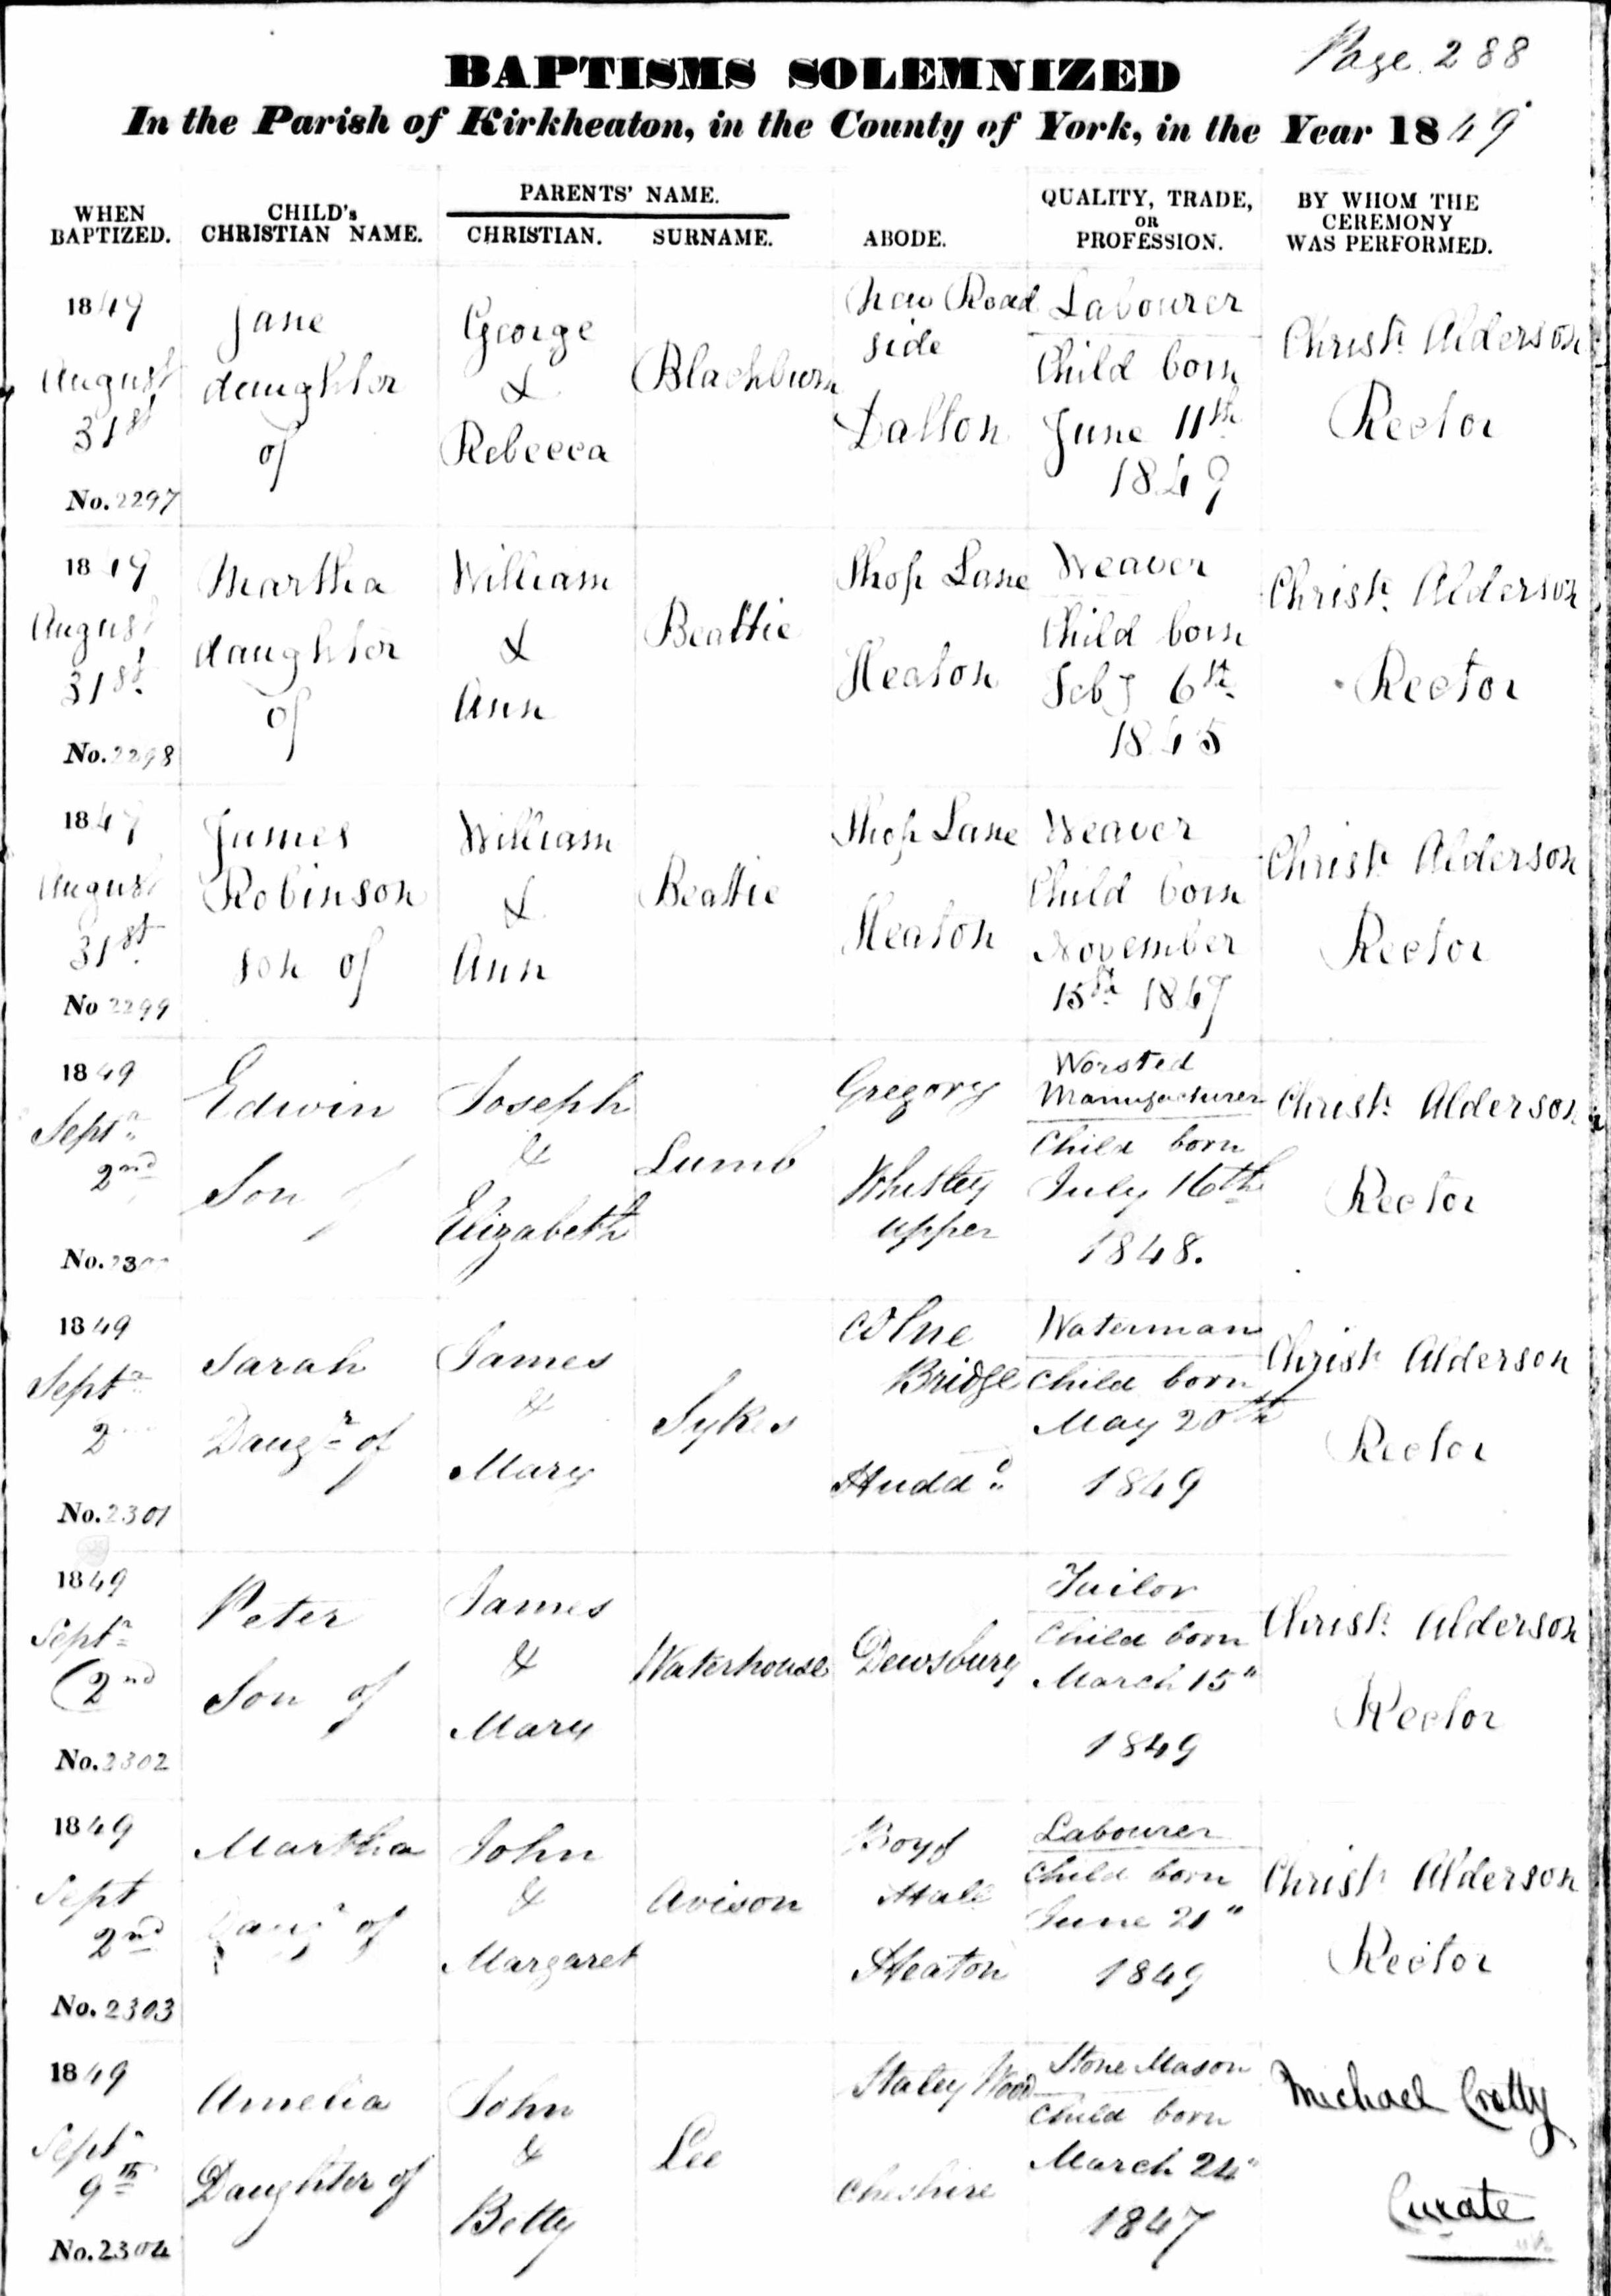 Page 288
BAPTISMS SOLEMNIZED
In the Parish of Kirkheaton, in the County of York, in the Year 1849
WHEN BAPTIZED.
CHILD's CHRISTIAN NAME.
PARENTS' NAME.
CHRISTIAN.
SURNAME.
ABODE.
QUALITY, TRADE, OR PROFESSION.
BY WHOM THE CEREMONY WAS PERFORMED.
1849
August
31st
No. 2297
Jane
daughter
of
George
&
Rebecca
Blackburn
New Road
side
Dalton
Labourer
Child born
June 11th
1849
Christr. Alderson
Rector
1849
August
31st.
No. 2298
Martha
daughter
of
William
&
Ann
Beattie
Shop Lane
Heaton
Weaver
Child born
Feby 6th
1845
Christr. Alderson
Rector
1849
August
31st.
No 2299
James
Robinson
son of
William
&
Ann
Beattie
Shop Lane
Heaton
Weaver
Child born
November
15th 1847
Christr Alderson
Rector
1849
Septr
2nd
No. 2300
Edwin
Son of
Joseph
&
Elizabeth
Lumb
Gregory
Whitley
upper
Worsted
Manufacturer
Child born
July 16th
1848.
Christr. Alderson
Rector
1849
Septr
2nd
No. 2301
Sarah
Daugr of
James
&
Mary
Sykes
Colne
Bridge
Hudd.d
Waterman
Child born
May 20th
1849
Christr Alderson
Rector
1849
Septr
2nd
No. 2302
Peter
Son of
James
&
Mary
Waterhouse
Dewsbury
Tailor
Child born
March 15"
1849
Christr. Alderson
Rector
1849
Sept
2nd
No. 2303
Martha
Daugr of
John
&
Margaret
Avison
Heaton
Labourer
Child born
June 21"
1849
Christr Alderson
Rector
1849
Septr
9th
No. 2304
Amelia
Daughter of
John
&
Betty
Lee
Staley Wood
Cheshire
Stone Mason
Child born
March 24"
1847
Michael Crotty
Curate